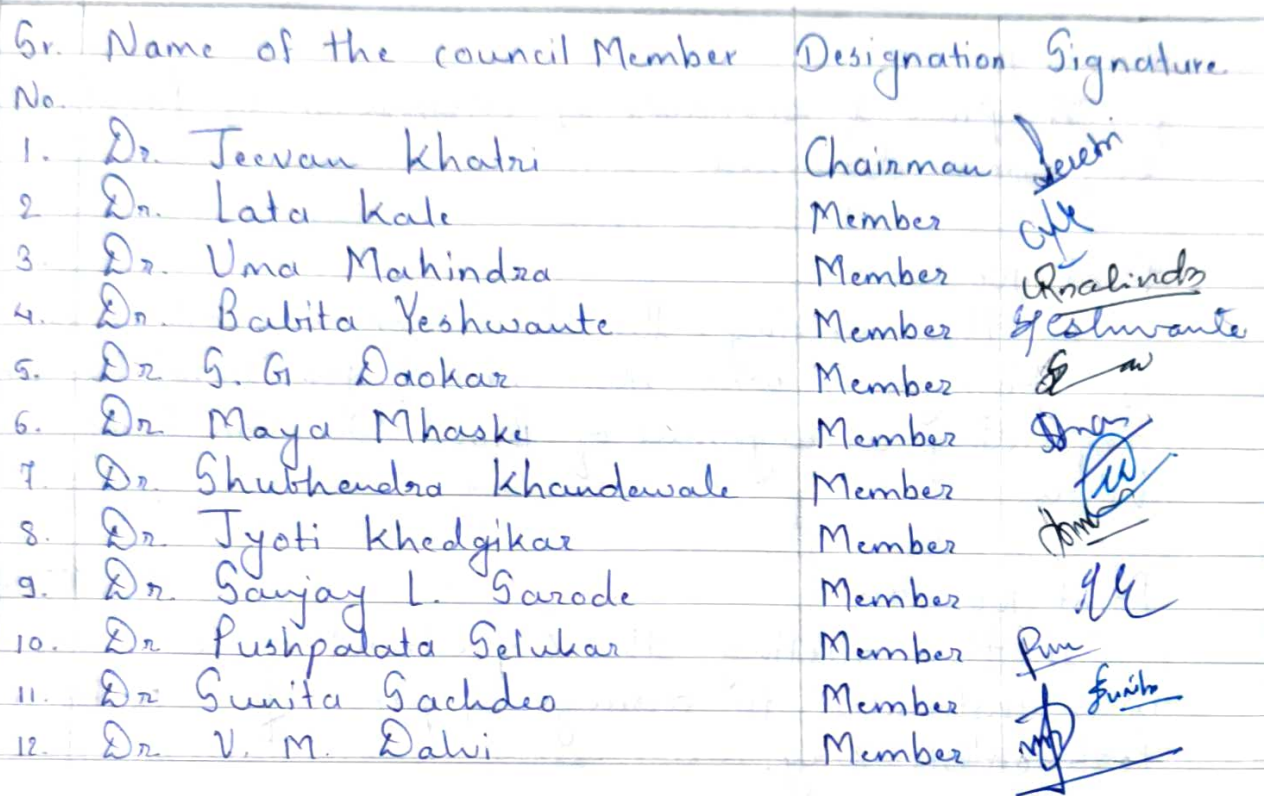 Sr. Name of the council Member Designation Signature
No.
1. Dr. Jeevan Khatri Chairman
2 Dr. Lata Kale Member
3 Dr. Uma Mahindra Member
4. Dr. Babita Yeshwante Member Yeshwante
5. Dr S. G Daokar Member
6. Dr. Maya Mhaske Member
7. Dr. Shubhendra Khandewale Member
8. Dr. Jyoti Khedgikar Member
9. Dr. Sanjay L. Sarode Member
10. Dr Pushpalata Selukar Member
11. Dr Sunita Sachdeo Member Sunita
12. Dr V. M. Dalvi Member